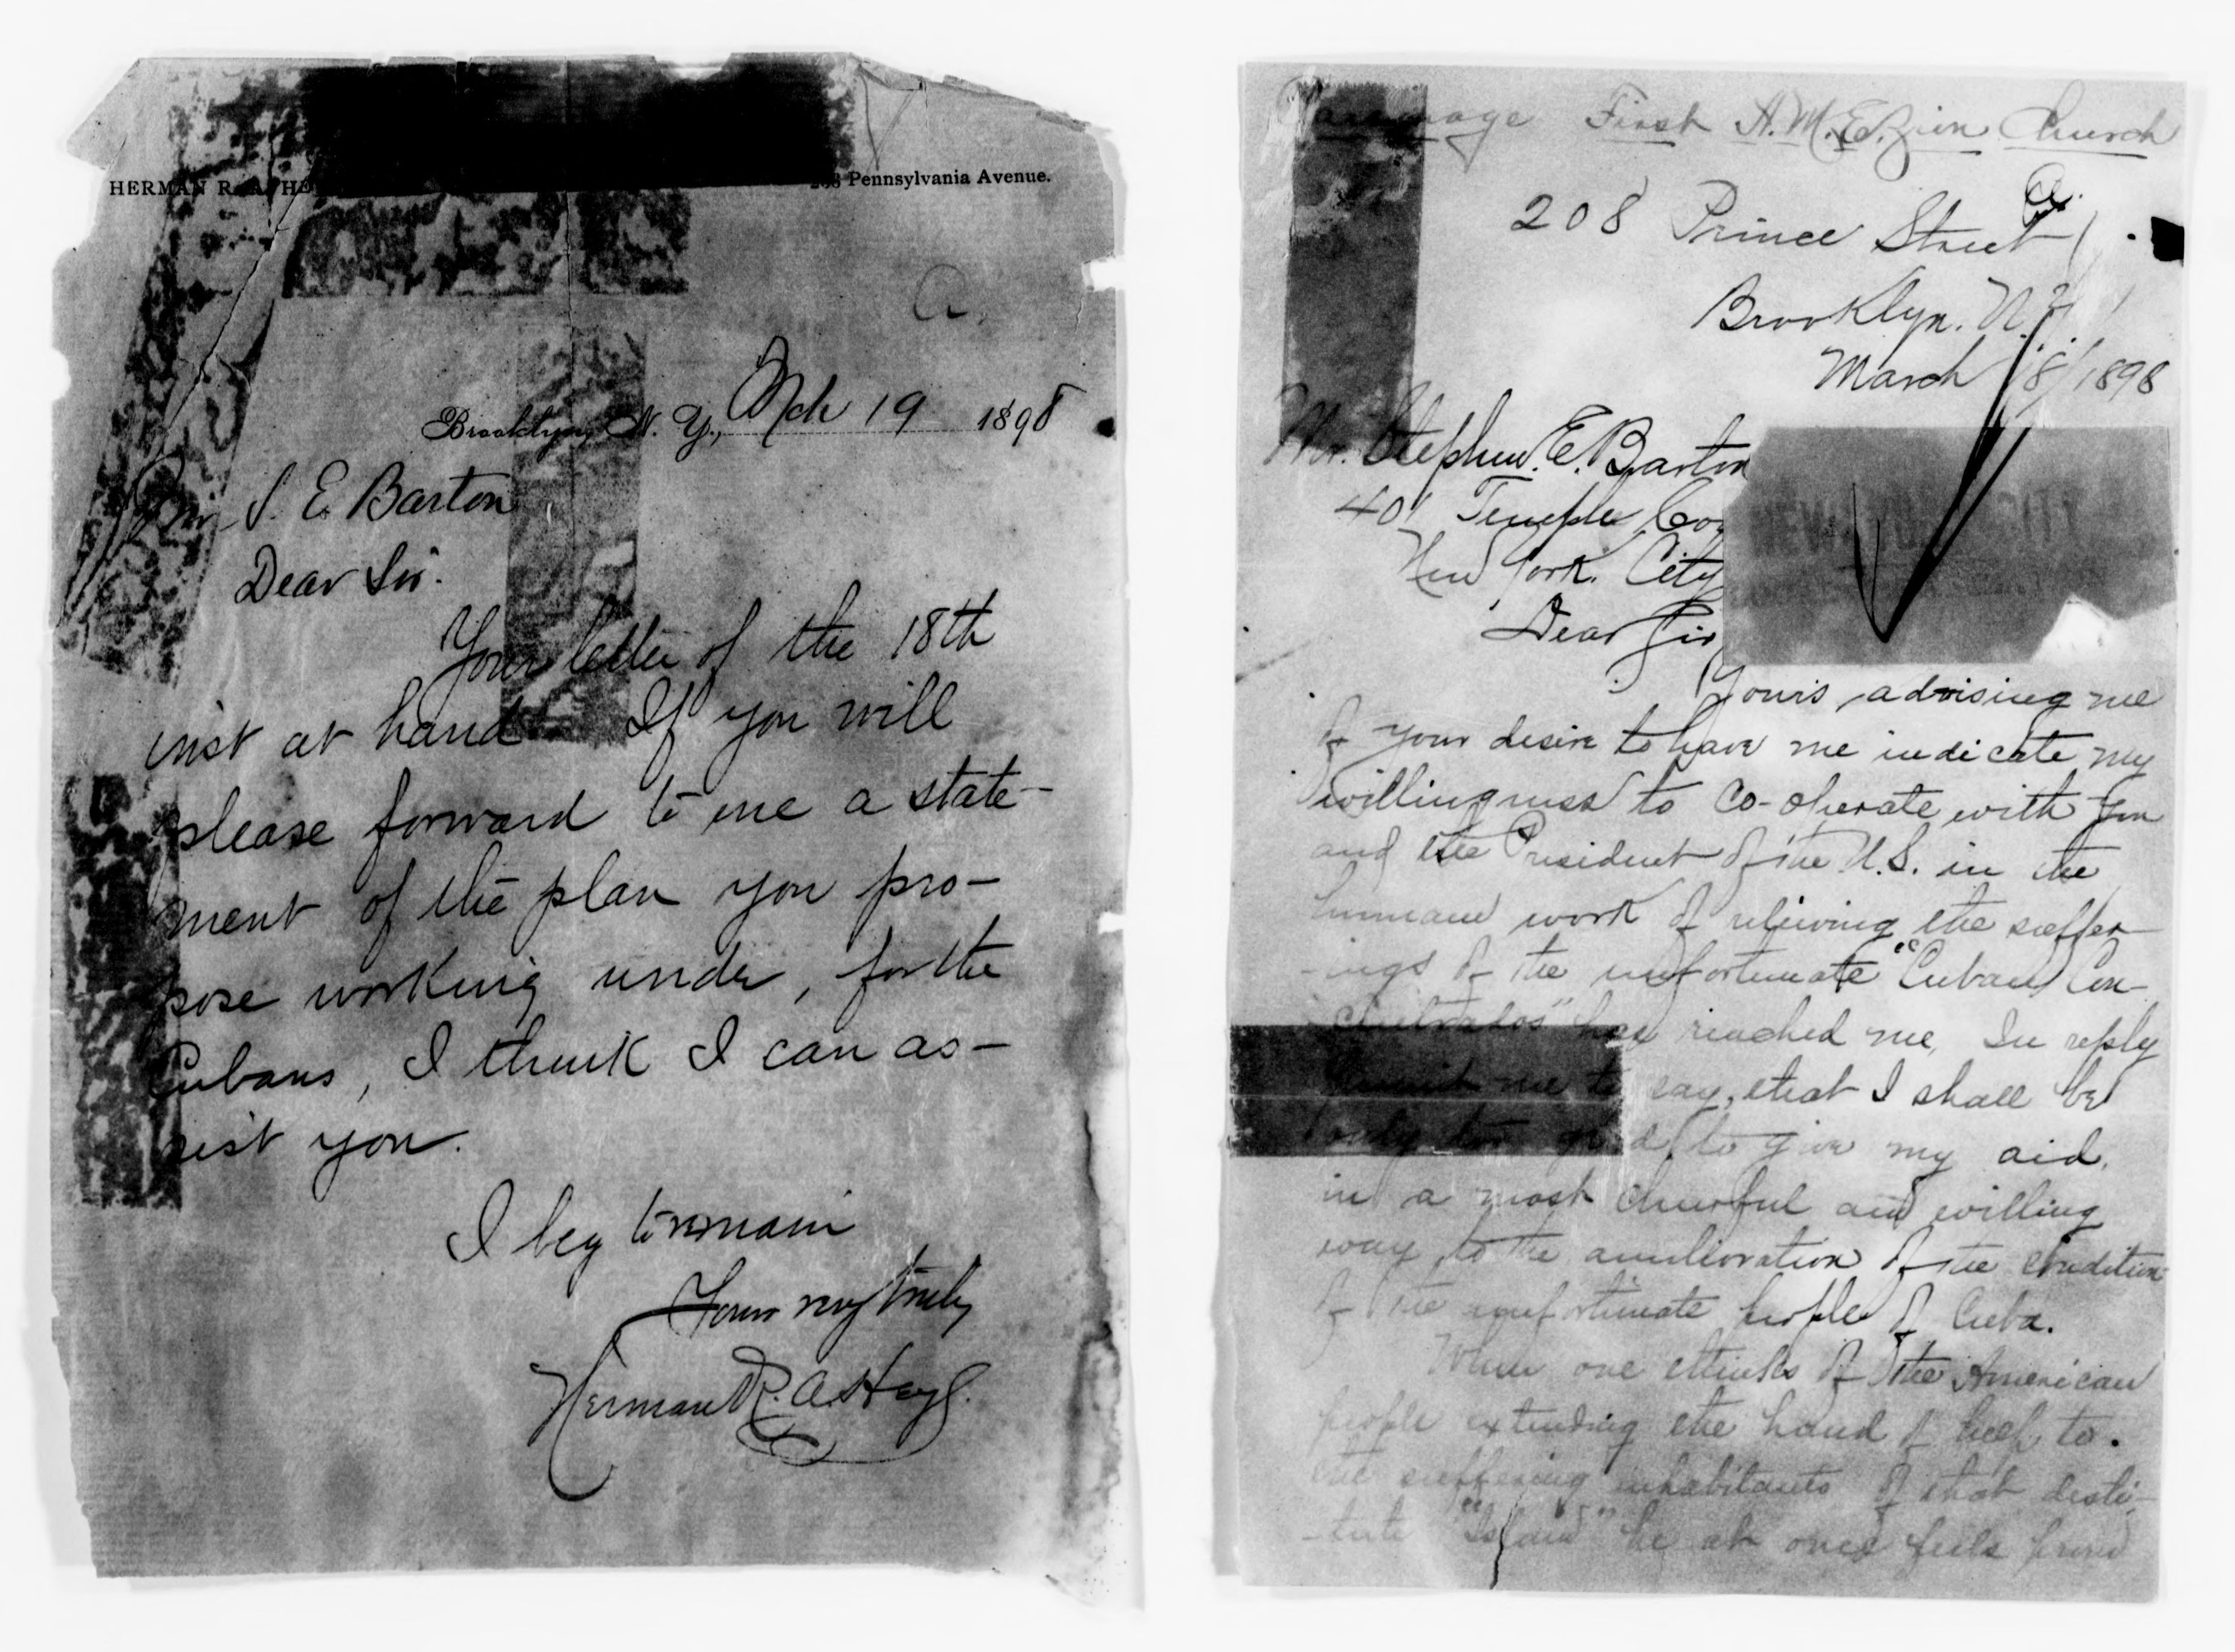 HERMAN R. A. HE
Pennsylvania Avenue.
a.
Brooklyn, N. Y., Mch 19 1898
S. E. Barton
Dear Sir.
Your letter of the 18th
inst at hand If you will
please forward to me a state-
ment of the plan you pro-
pose working under, for the
Cubans, I think I can as-
sist you.
I beg to remain
Yours very truly
Herman R. A.
Parsonage First A.M.E. Zion Church
a.
208 Prince Street
Brooklyn. N.Y.
March 18/1898
Mr. Stephen. E. Barton
401 Temple Cou
New York. City
Dear Sir
Yours advising me
of your desire to have me indicate my
willingness to co-operate with you
and the President of the U.S. in the
humane work of relieving the suffer-
-ings of the unfortunate "Cuban Con-
has reached me, In reply
permit me to say, that I shall be
only too glad to give my aid,
in a most cheerful and willing
way to the amelioration of the condition
of the unfortunate people of Cuba.
When one thinks of the American
people extending the hand of help to
the suffering inhabitants of that desti-
-tute "Island" he at once feels proud